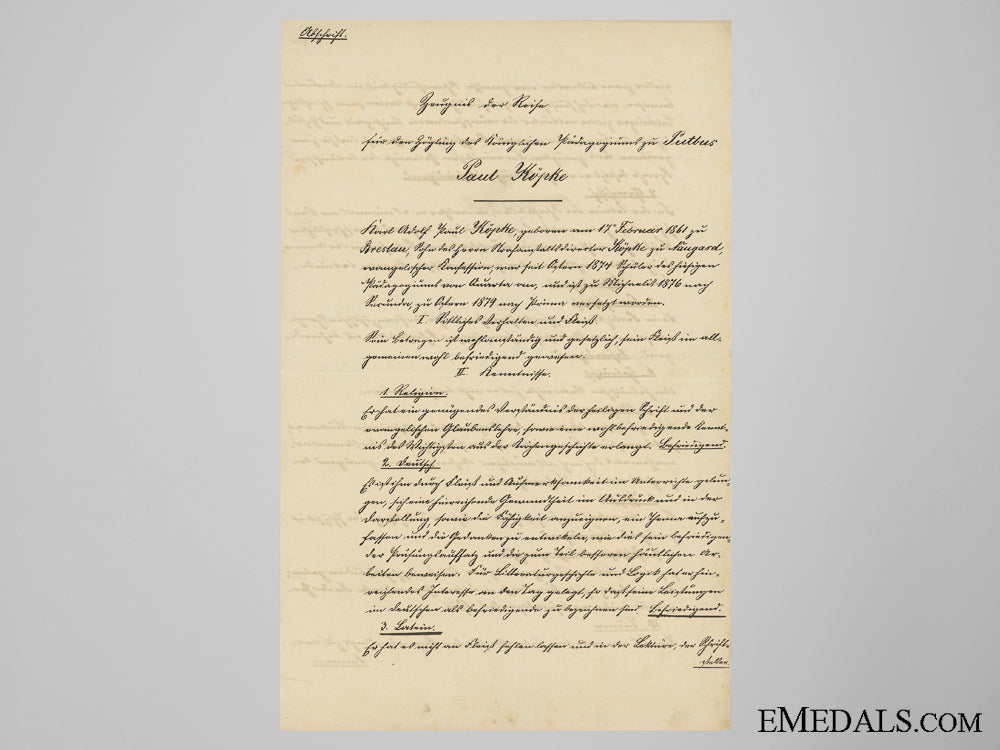 Abschrift.
Zeugnis der Reife
für den Zögling des Königlichen Pädagogiums zu Putbus
Paul Köpke
Karl Adolf Paul Köpke, geboren am 17. Februar 1861 zu
Breslau, Sohn des Herrn Strafanstaltsdirector Köpke zu Naugard,
evangelischer Konfession, war seit Ostern 1874 Schüler des hiesigen
Pädagogiums von Quarta an, und ist zu Michaelis 1876 nach
Secunda, zu Ostern 1879 nach Prima versetzt worden.
I. Sittliches Verhalten und Fleiß.
Sein Betragen ist wohlanständig und gesetzlich, sein Fleiß im all-
gemeinen wohl befriedigend gewesen.
II. Kenntnisse.
1. Religion.
Er hat ein genügendes Verständnis der heiligen Schrift und der
evangelischen Glaubenslehre, sowie eine wohl befriedigende Kennt-
nis des Wichtigsten aus der Kirchengeschichte erlangt. Befriedigend.
2. Deutsch.
Es ist ihm durch Fleiß und Aufmerksamkeit im Unterrichte gelun-
gen, sich eine hinreichende Gewandtheit im Ausdruck und in der
Darstellung, sowie die Fähigkeit anzueignen, ein Thema aufzu-
fassen und die Gedanken zu entwickeln, wie dies sein befriedigen-
der Prüfungsaufsatz und die zum Teil besseren häuslichen Ar-
beiten beweisen. Für Litteraturgeschichte und Logik hat er hin-
reichendes Interesse an den Tag gelegt, so daß seine Leistungen
im Deutschen als befriedigende zu bezeichnen sind. Befriedigend.
3. Latein.
Er hat es nicht an Fleiß fehlen lassen und in der Lektüre, der Schrift-
steller
EMEDALS.COM